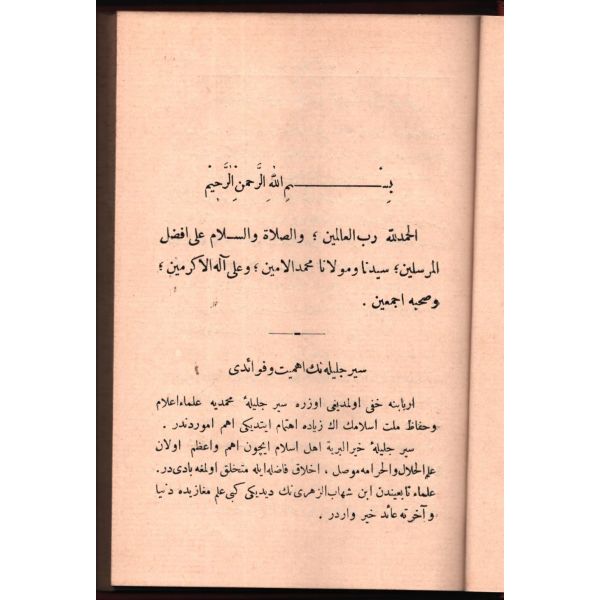 بِسْمِ اللهِ الرَّحْمٰنِ الرَّحِيْمِ
الحمدلله رب العالمين ؛ والصلاة والســلام على افضل
المرسلين ؛ سيدنا ومولانا محمد الامين ؛ وعلى آله الاكرمين ؛
وصحبه اجمعين .
سير جليله نك اهميت و فوائدى
اربابنه خفى اولمديغى اوزره سير جليلۀ محمديه علماء اعلام
وحفاظ ملت اسلامك اك زياده اهتمام ايتديكى اهم اموردندر .
سير جليلۀ خير البريه اهل اسلام ايچون اهم واعظم اولان
علم الحلال والحرامه موصل ، اخلاق فاضله ايله متخلق اولمغه بادى در .
علماء تابعيندن ابن شهاب الزهرى نك ديديكى كبى علم مغازيده دنيا
و آخرته عائد خير واردر .